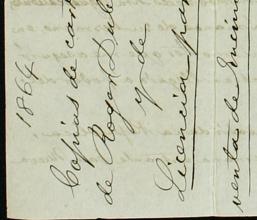 1864
Copias de cart
de Roger Dub
y de
Licencia par
venta de Encina